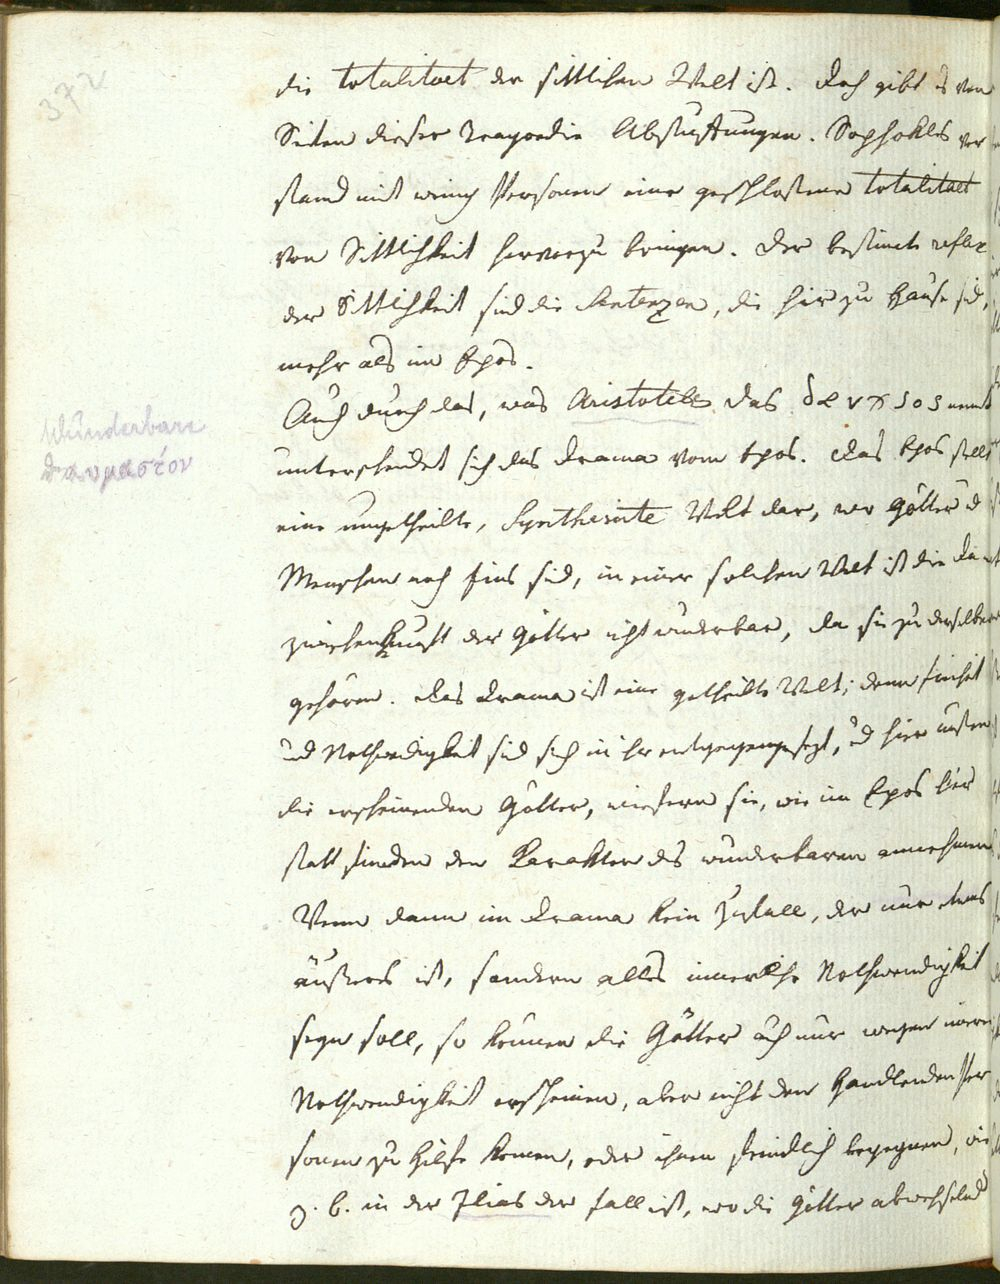 37 v
die totalitaet der sittlichen Welt ist. Doch gibt es von
Seiten dieser Tragoedie Abstuffungen. Sophokles ver
stand mit wenig Personen eine geschloßene totalitaet
von Sittlichkeit hervorzu bringen. Der bestimte reflex
der Sittlichkeit sind die Sentenzen, die hier zu Hause sid,
mehr als im Epos.
Auch durch das, was Aristoteles das nennt
Wunderbare
θαυμαστόν
unterscheidet sich das Drama vom Epos. Das Epos stellt
eine ungetheilte, Welt dar, wo Götter ud
Menschen noch Eins sid, in einer solchen Welt ist die Da
zwischenkunft der Götter nicht wuderbar, da sie zu derselben
gehören. Das Drama ist eine getheilte Welt; denn Freiheit
ud Nothwedigkeit sid sich in ihr entgegengesezt, ud hier müßen
die erscheinenden Götter, wiefern sie, wie im Epos hier
statt finden den Karakter des wunderbaren annehmen
Wenn dann im Drama kein Zufall, der nur etwas
äußeres ist, sondern alles innerliche Nothwendigkeit
seyn soll, so können die Götter ach nur wegen inerer
Nothwendigkeit erscheinen, aber nicht den Handlenden Per
sonen zu Hilfe komen, oder ihnen feindlich begegnen, wie
z. B. in der Ilias der Fall ist, wo die Götter abwechselnd